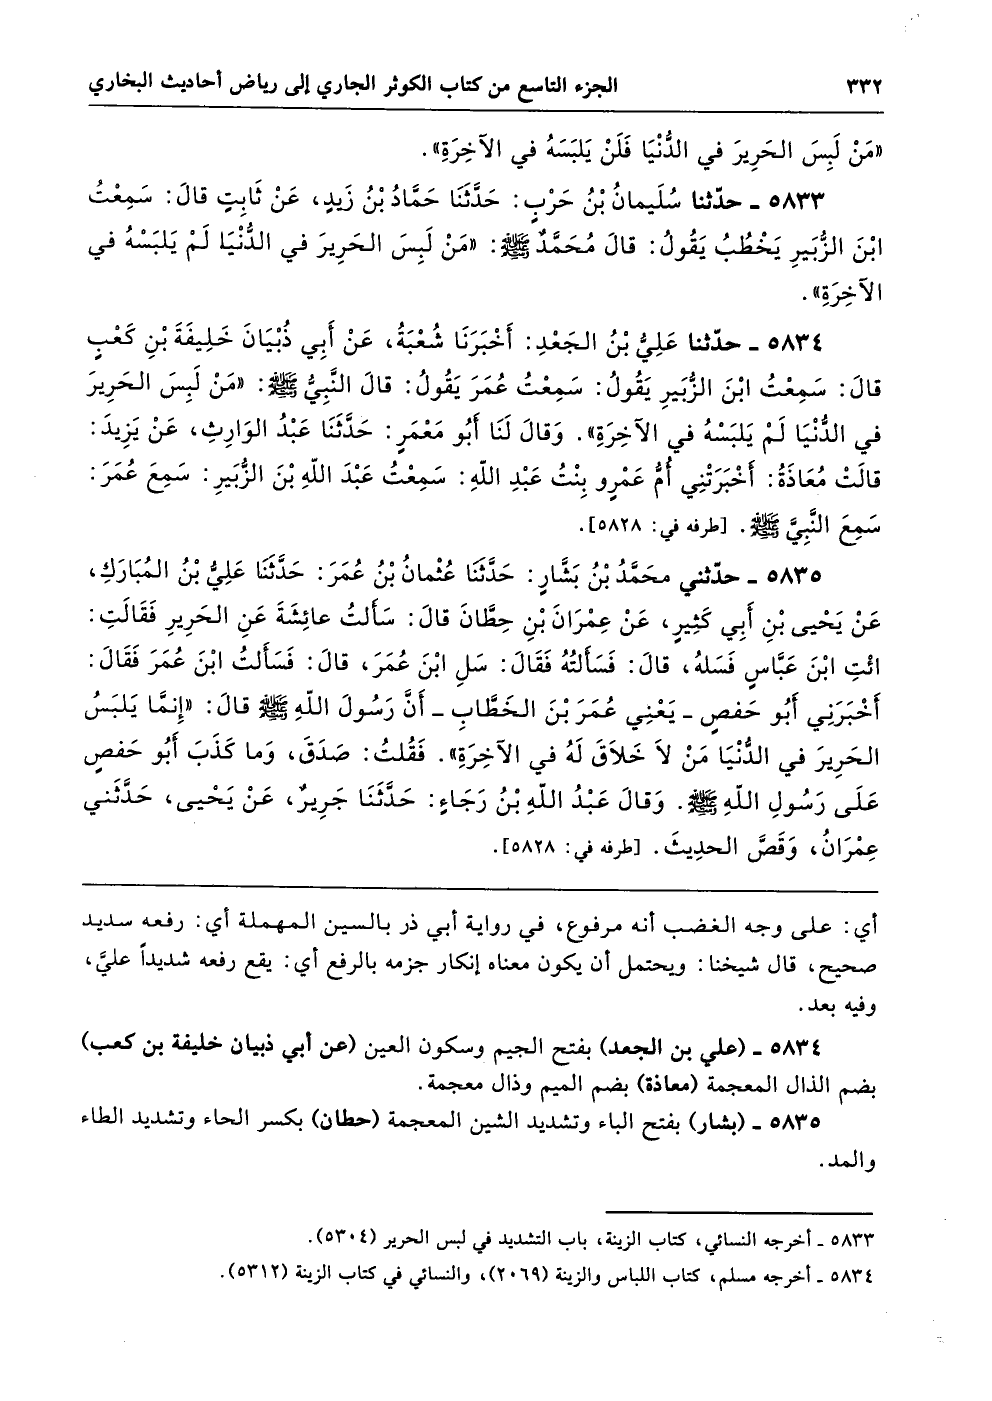 ٣٣٢ الجزء التاسع من كتاب الكوثر الجاري إلى رياض أحاديث البخاري
«مَنْ لَبِسَ الحَرِيرَ في الدُّنْيَا فَلَنْ يَلبَسَهُ في الآخِرَةِ».
٥٨٣٣ ـ حدّثنا سُلَيمانُ بْنُ حَرْبٍ: حَدَّثَنَا حَمَّادُ بْنُ زَيدٍ، عَنْ ثَابِتٍ قالَ: سَمِعْتُ
ابْنَ الزُّبَيرِ يَخْطُبُ يَقُولُ: قالَ مُحَمَّدٌ ﷺ: «مَنْ لَبِسَ الحَرِيرَ في الدُّنْيَا لَمْ يَلبَسْهُ في
الآخِرَةِ».
٥٨٣٤ ـ حدّثنا عَلِيُّ بْنُ الجَعْدِ: أَخْبَرَنَا شُعْبَةُ، عَنْ أَبِي ذُبْيَانَ خَلِيفَةَ بْنِ كَعْبٍ
قالَ: سَمِعْتُ ابْنَ الزُّبَيرِ يَقُولُ: سَمِعْتُ عُمَرَ يَقُولُ: قالَ النَّبِيُّ ﷺ: «مَنْ لَبِسَ الحَرِيرَ
في الدُّنْيَا لَمْ يَلبَسْهُ في الآخِرَةِ». وَقالَ لَنَا أَبُو مَعْمَرٍ: حَدَّثَنَا عَبْدُ الوَارِثِ، عَنْ يَزِيدَ:
قالَتْ مُعَاذَةُ: أَخْبَرَتْنِي أُمُّ عَمْرٍو بِنْتُ عَبْدِ اللّهِ: سَمِعْتُ عَبْدَ اللّهِ بْنَ الزُّبَيرِ: سَمِعَ عُمَرَ:
سَمِعَ النَّبِيَّ ﷺ. [طرفه في: ٥٨٢٨].
٥٨٣٥ ـ حدّثني محَمَّدُ بْنُ بَشَّارٍ: حَدَّثَنَا عُثْمانُ بْنُ عُمَرَ: حَدَّثَنَا عَلِيُّ بْنُ المُبَارَكِ،
عَنْ يَحْيى بْنِ أَبِي كَثِيرٍ، عَنْ عِمْرَانَ بْنِ حِطَّانَ قالَ: سَأَلتُ عائِشَةَ عَنِ الحَرِيرِ فَقَالَتِ:
ائْتِ ابْنَ عَبَّاسٍ فَسَلهُ، قالَ: فَسَأَلتُهُ فَقَالَ: سَلِ ابْنَ عُمَرَ، قالَ: فَسَأَلتُ ابْنَ عُمَرَ فَقَالَ:
أَخْبَرَنِي أَبُو حَفصٍ ـ يَعْنِي عُمَرَ بْنَ الخَطَّابِ ـ أَنَّ رَسُولَ اللّهِ ﷺ قالَ: «إِنمَّا يَلبَسُ
الحَرِيرَ في الدُّنْيَا مَنْ لاَ خَلاَقَ لَهُ في الآخِرَةِ». فَقُلتُ: صَدَقَ، وَما كَذَبَ أَبُو حَفصٍ
عَلَى رَسُولِ اللّهِ ﷺ. وَقالَ عَبْدُ اللّهِ بْنُ رَجَاءٍ: حَدَّثَنَا جَرِيرٌ، عَنْ يَحْيى، حَدَّثَني
عِمْرَانُ، وَقَصَّ الحَدِيثَ. [طرفه في: ٥٨٢٨].
أي: على وجه الغضب أنه مرفوع، في رواية أبي ذر بالسين المهملة أي: رفعه سديد
صحيح، قال شيخنا: ويحتمل أن يكون معناه إنكار جزمه بالرفع أي: يقع رفعه شديداً عليَّ،
وفيه بعد.
٥٨٣٤ ـ (علي بن الجعد) بفتح الجيم وسكون العين (عن أبي ذبيان خليفة بن كعب)
بضم الذال المعجمة (معاذة) بضم الميم وذال معجمة.
٥٨٣٥ ـ (بشار) بفتح الباء وتشديد الشين المعجمة (حطان) بكسر الحاء وتشديد الطاء
والمد.
٥٨٣٣ ـ أخرجه النسائي، كتاب الزينة، باب التشديد في لبس الحرير (٥٣٠٤).
٥٨٣٤ ـ أخرجه مسلم، كتاب اللباس والزينة (٢٠٦٩)، والنسائي في كتاب الزينة (٥٣١٢).